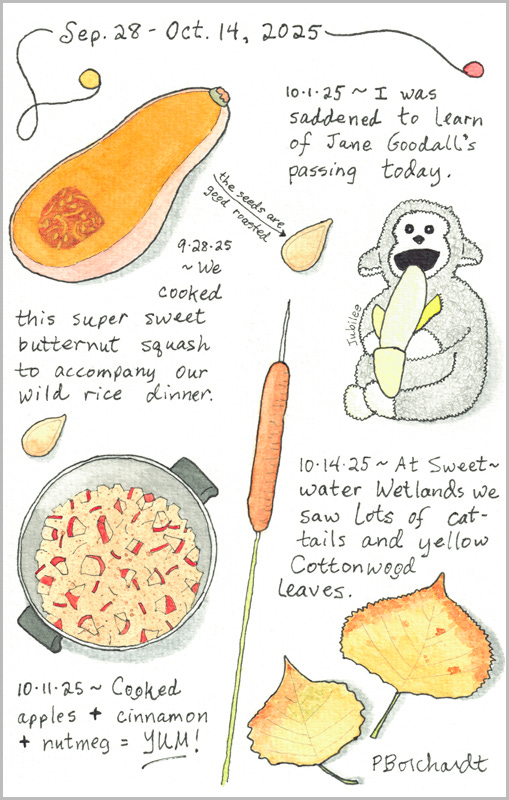 Sep. 28 - Oct. 14, 2025
10·1·25 ~ I was
saddened to learn
of Jane Goodall's
passing today.
the seeds are
good roasted
9·28·25
~ We
cooked
this super sweet
butternut squash
to accompany our
wild rice dinner.
Jubilee
10·14·25 ~ At Sweet~
water Wetlands we
saw lots of cat-
tails and yellow
Cottonwood
leaves.
10·11·25 ~ Cooked
apples + cinnamon
+ nutmeg = YUM!
PBorchardt